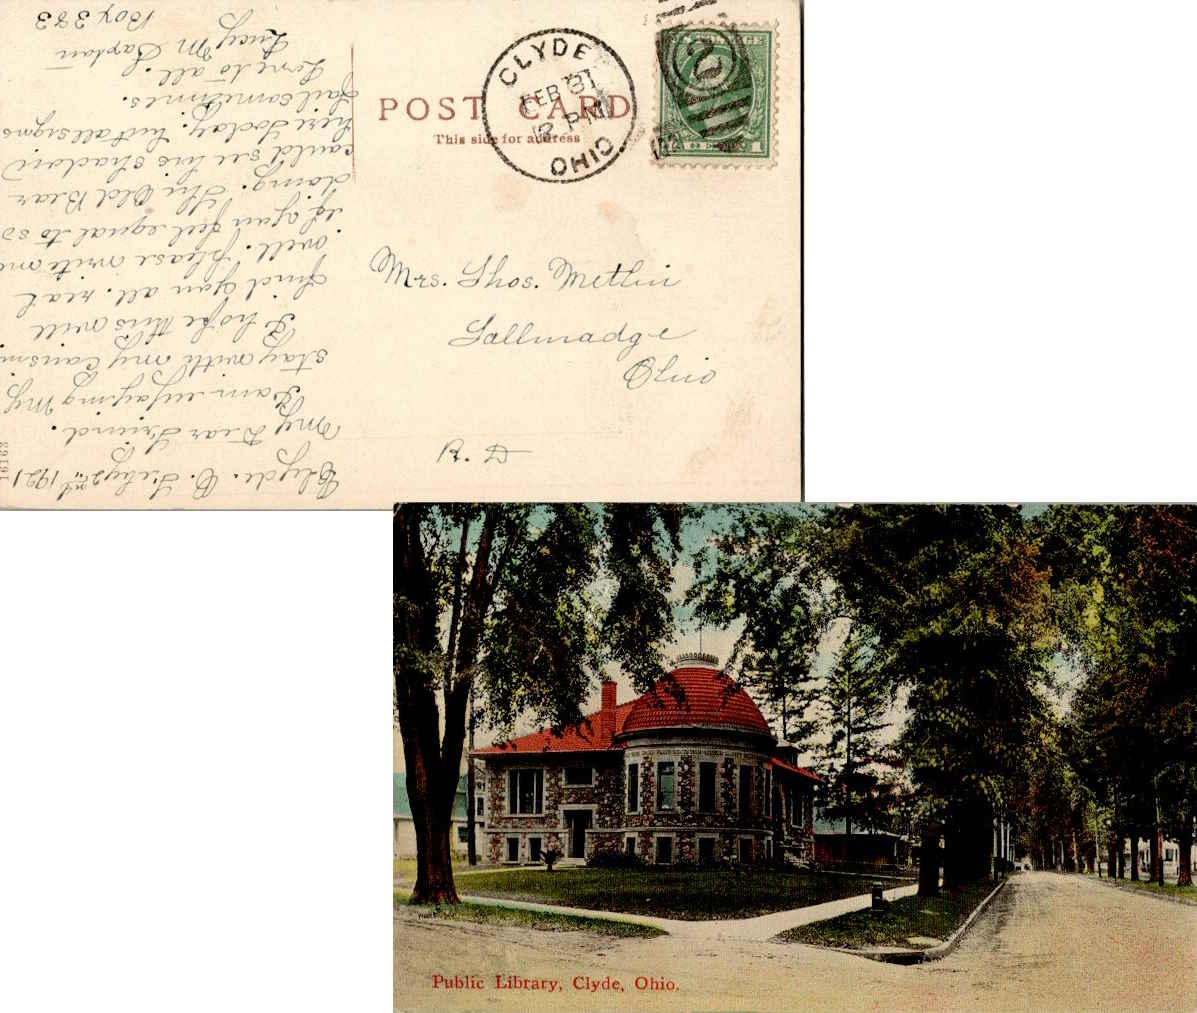 POST CARD
This side for address
CLYDE
FEB
PM
OHIO
2
1
Mrs. Thos. Metlin
Tallmadge
Ohio
R. D
16163
Clyde. O. Feby 2nd 1921
My Dear Friend.
I am enjoying my
stay with my Cousin
I hope this will
find you all. real
well. please write me
if you feel equal to so
doing. The Old Bear
could see his shadow
here today. but all signs
fail sometimes.
Love to all.
Lucy M
Box 383
Public Library, Clyde, Ohio.